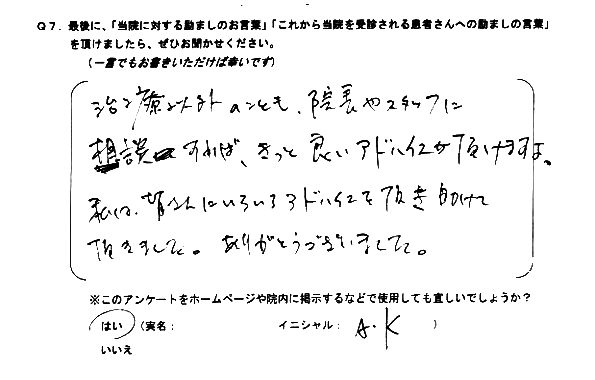 Q7．最後に、「当院に対する励ましのお言葉」「これから当院を受診される患者さんへの励ましの言葉」
を頂けましたら、ぜひお聞かせください。
（一言でもお書きいただけば幸いです）
治療以外のことも、院長やスタッフに
相談すれば、きっと良いアドバイスが頂けますよ。
私は、皆さんにいろいろアドバイスを頂き助けて
頂きました。ありがとうございました。
※このアンケートをホームページや院内に掲示するなどで使用しても宜しいでしょうか？
はい（実名： イニシャル： A.K ）
いいえ